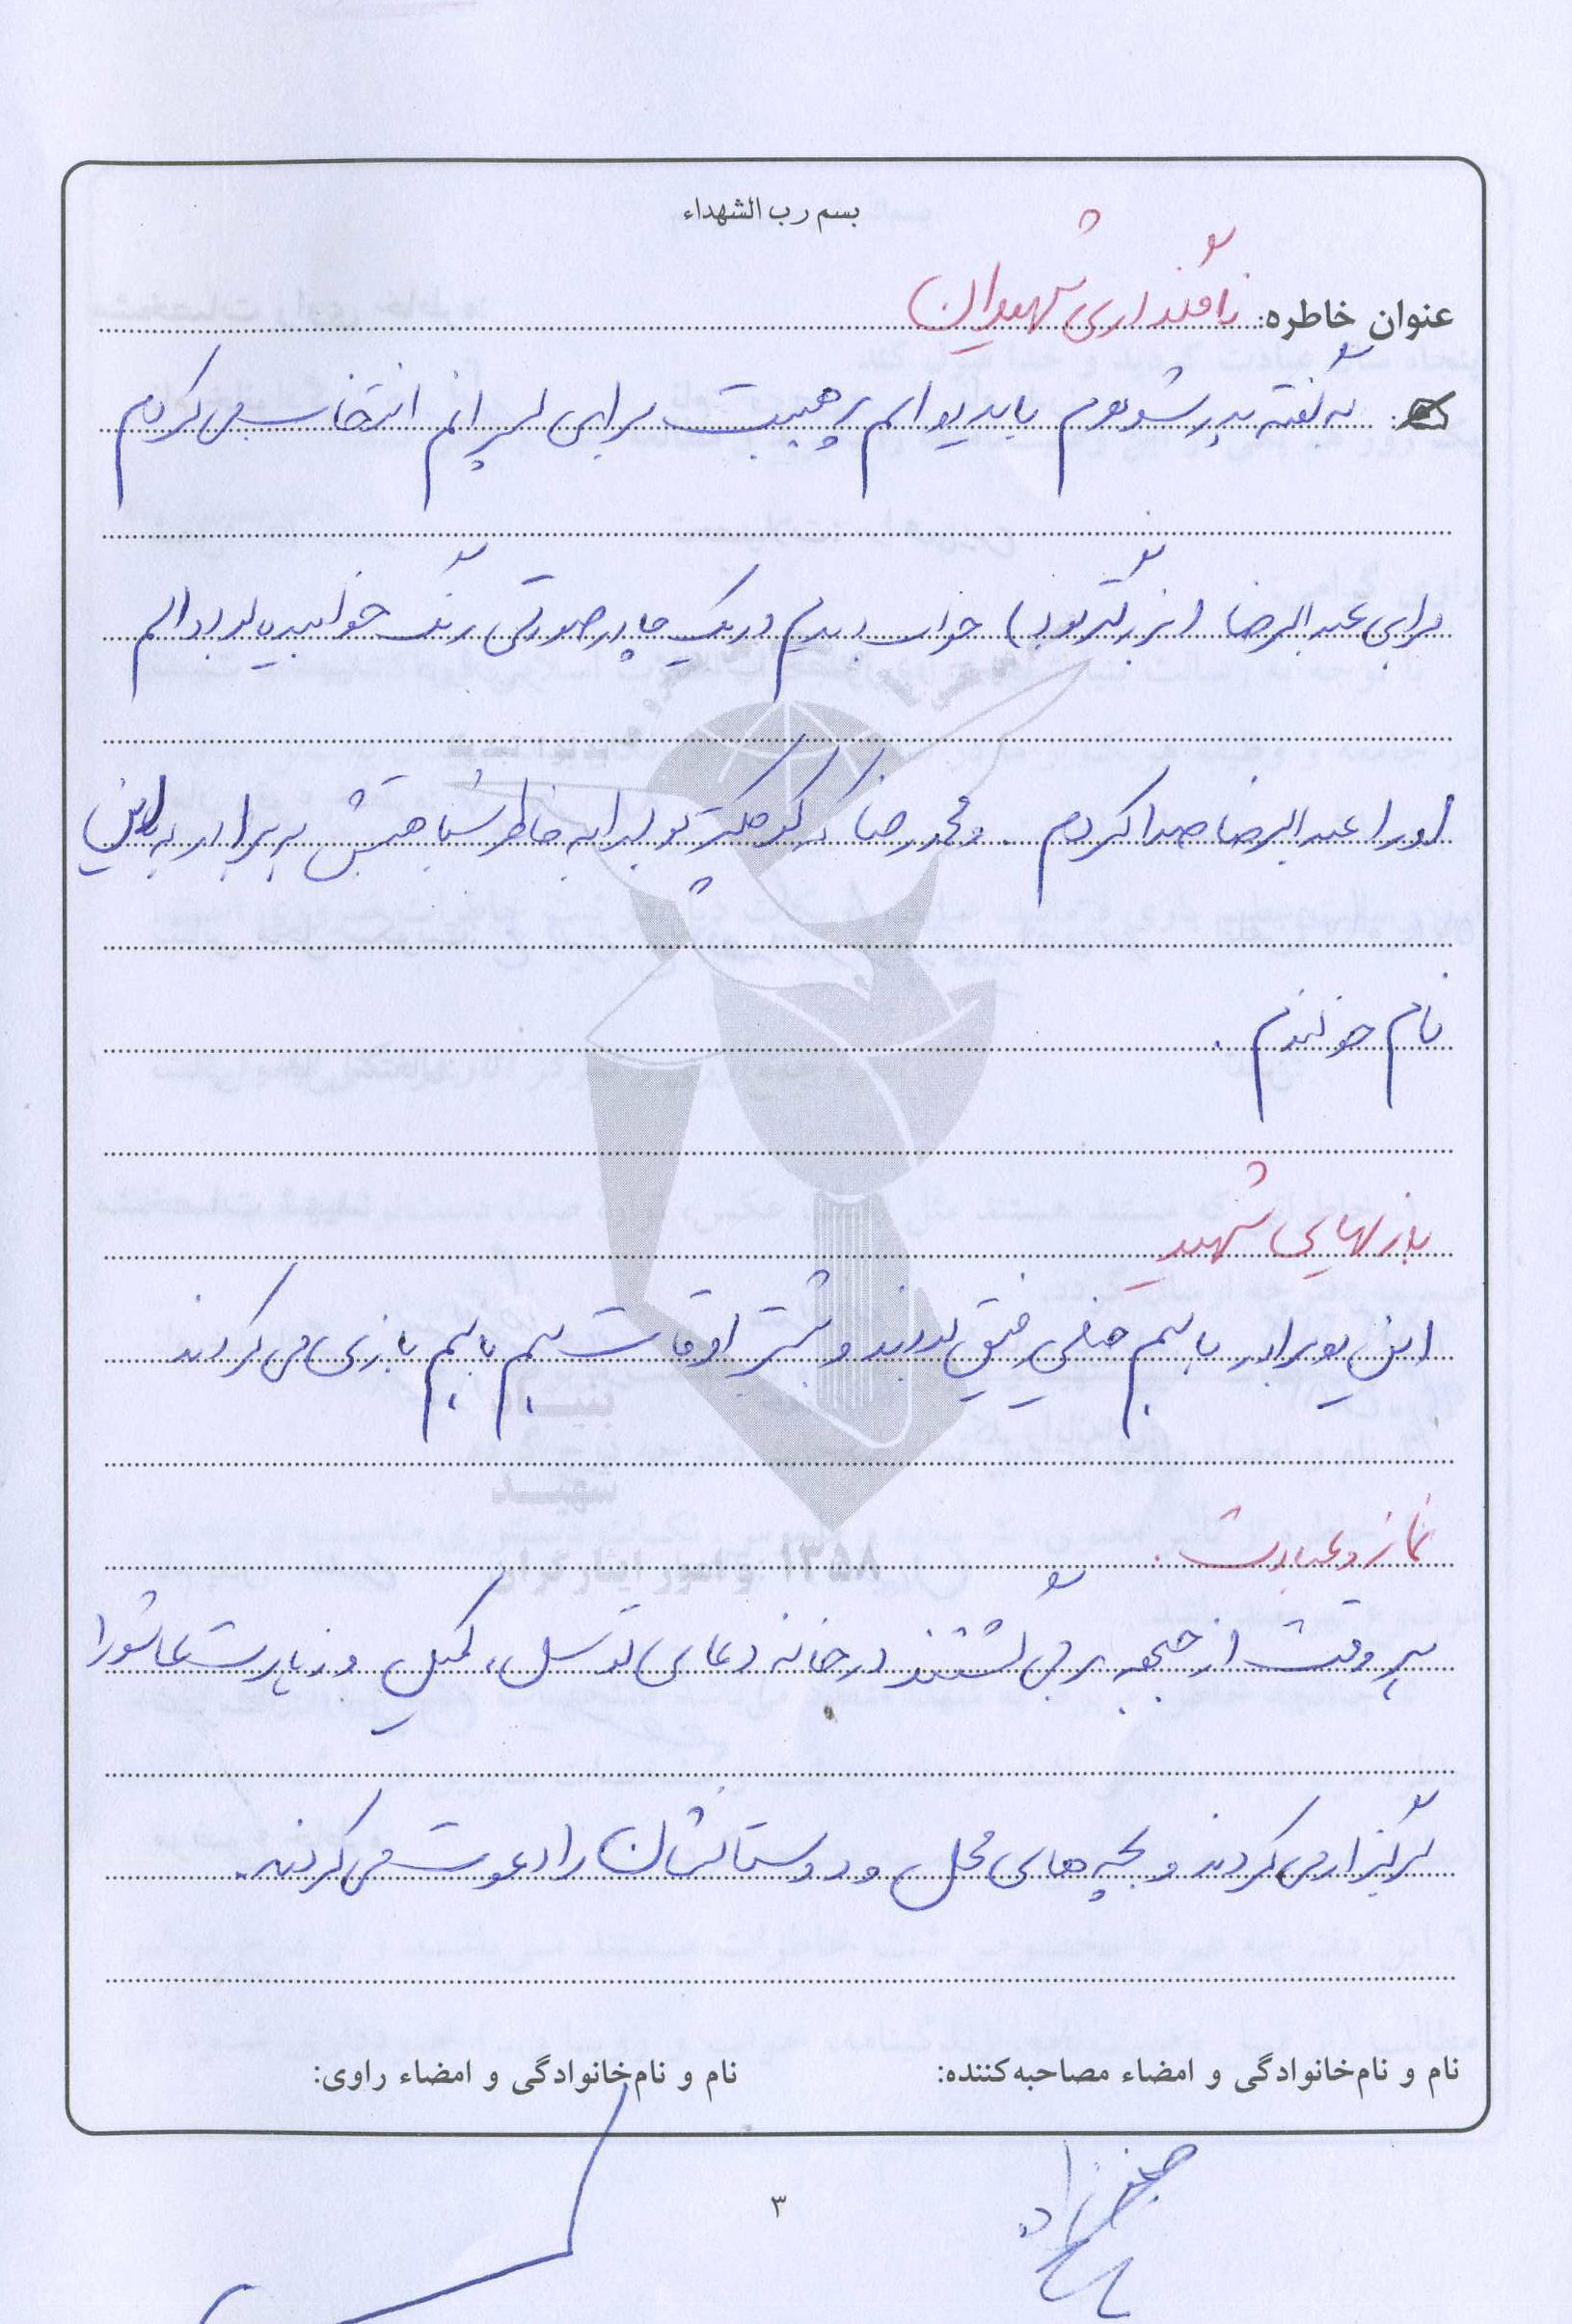 بسم رب الشهداء
عنوان خاطره: نامگذاری شهیدان
به گفته پدر شوهرم باید دو اسم پر هیبت برای پسرانم انتخاب می کردم
برای عبدالرضا (بزرگتر بود) خواب دیدم در یک چادر صورتی رنگ خوابیده بود و اسم
او را عبدالرضا صدا کردم. و محمدرضا که کوچکتر بود را به خاطر شباهتش به برادر به این
نام خواندم.
بازیهای شهید
این دو برادر با هم خیلی رفیق بودند و بیشتر اوقات هم با هم بازی می کردند
نماز و عبادت.
هر وقت از جبهه بر می گشتند در خانه دعای توسل، کمیل و زیارت عاشورا
برگزار می کردند و بچه های محل و دوستانشان را دعوت می کردند.
بنیاد
شهید
۱۳۵۸ و امور ایثارگران
نام و نام‌خانوادگی و امضاء مصاحبه‌کننده: نام و نام‌خانوادگی و امضاء راوی:
۳